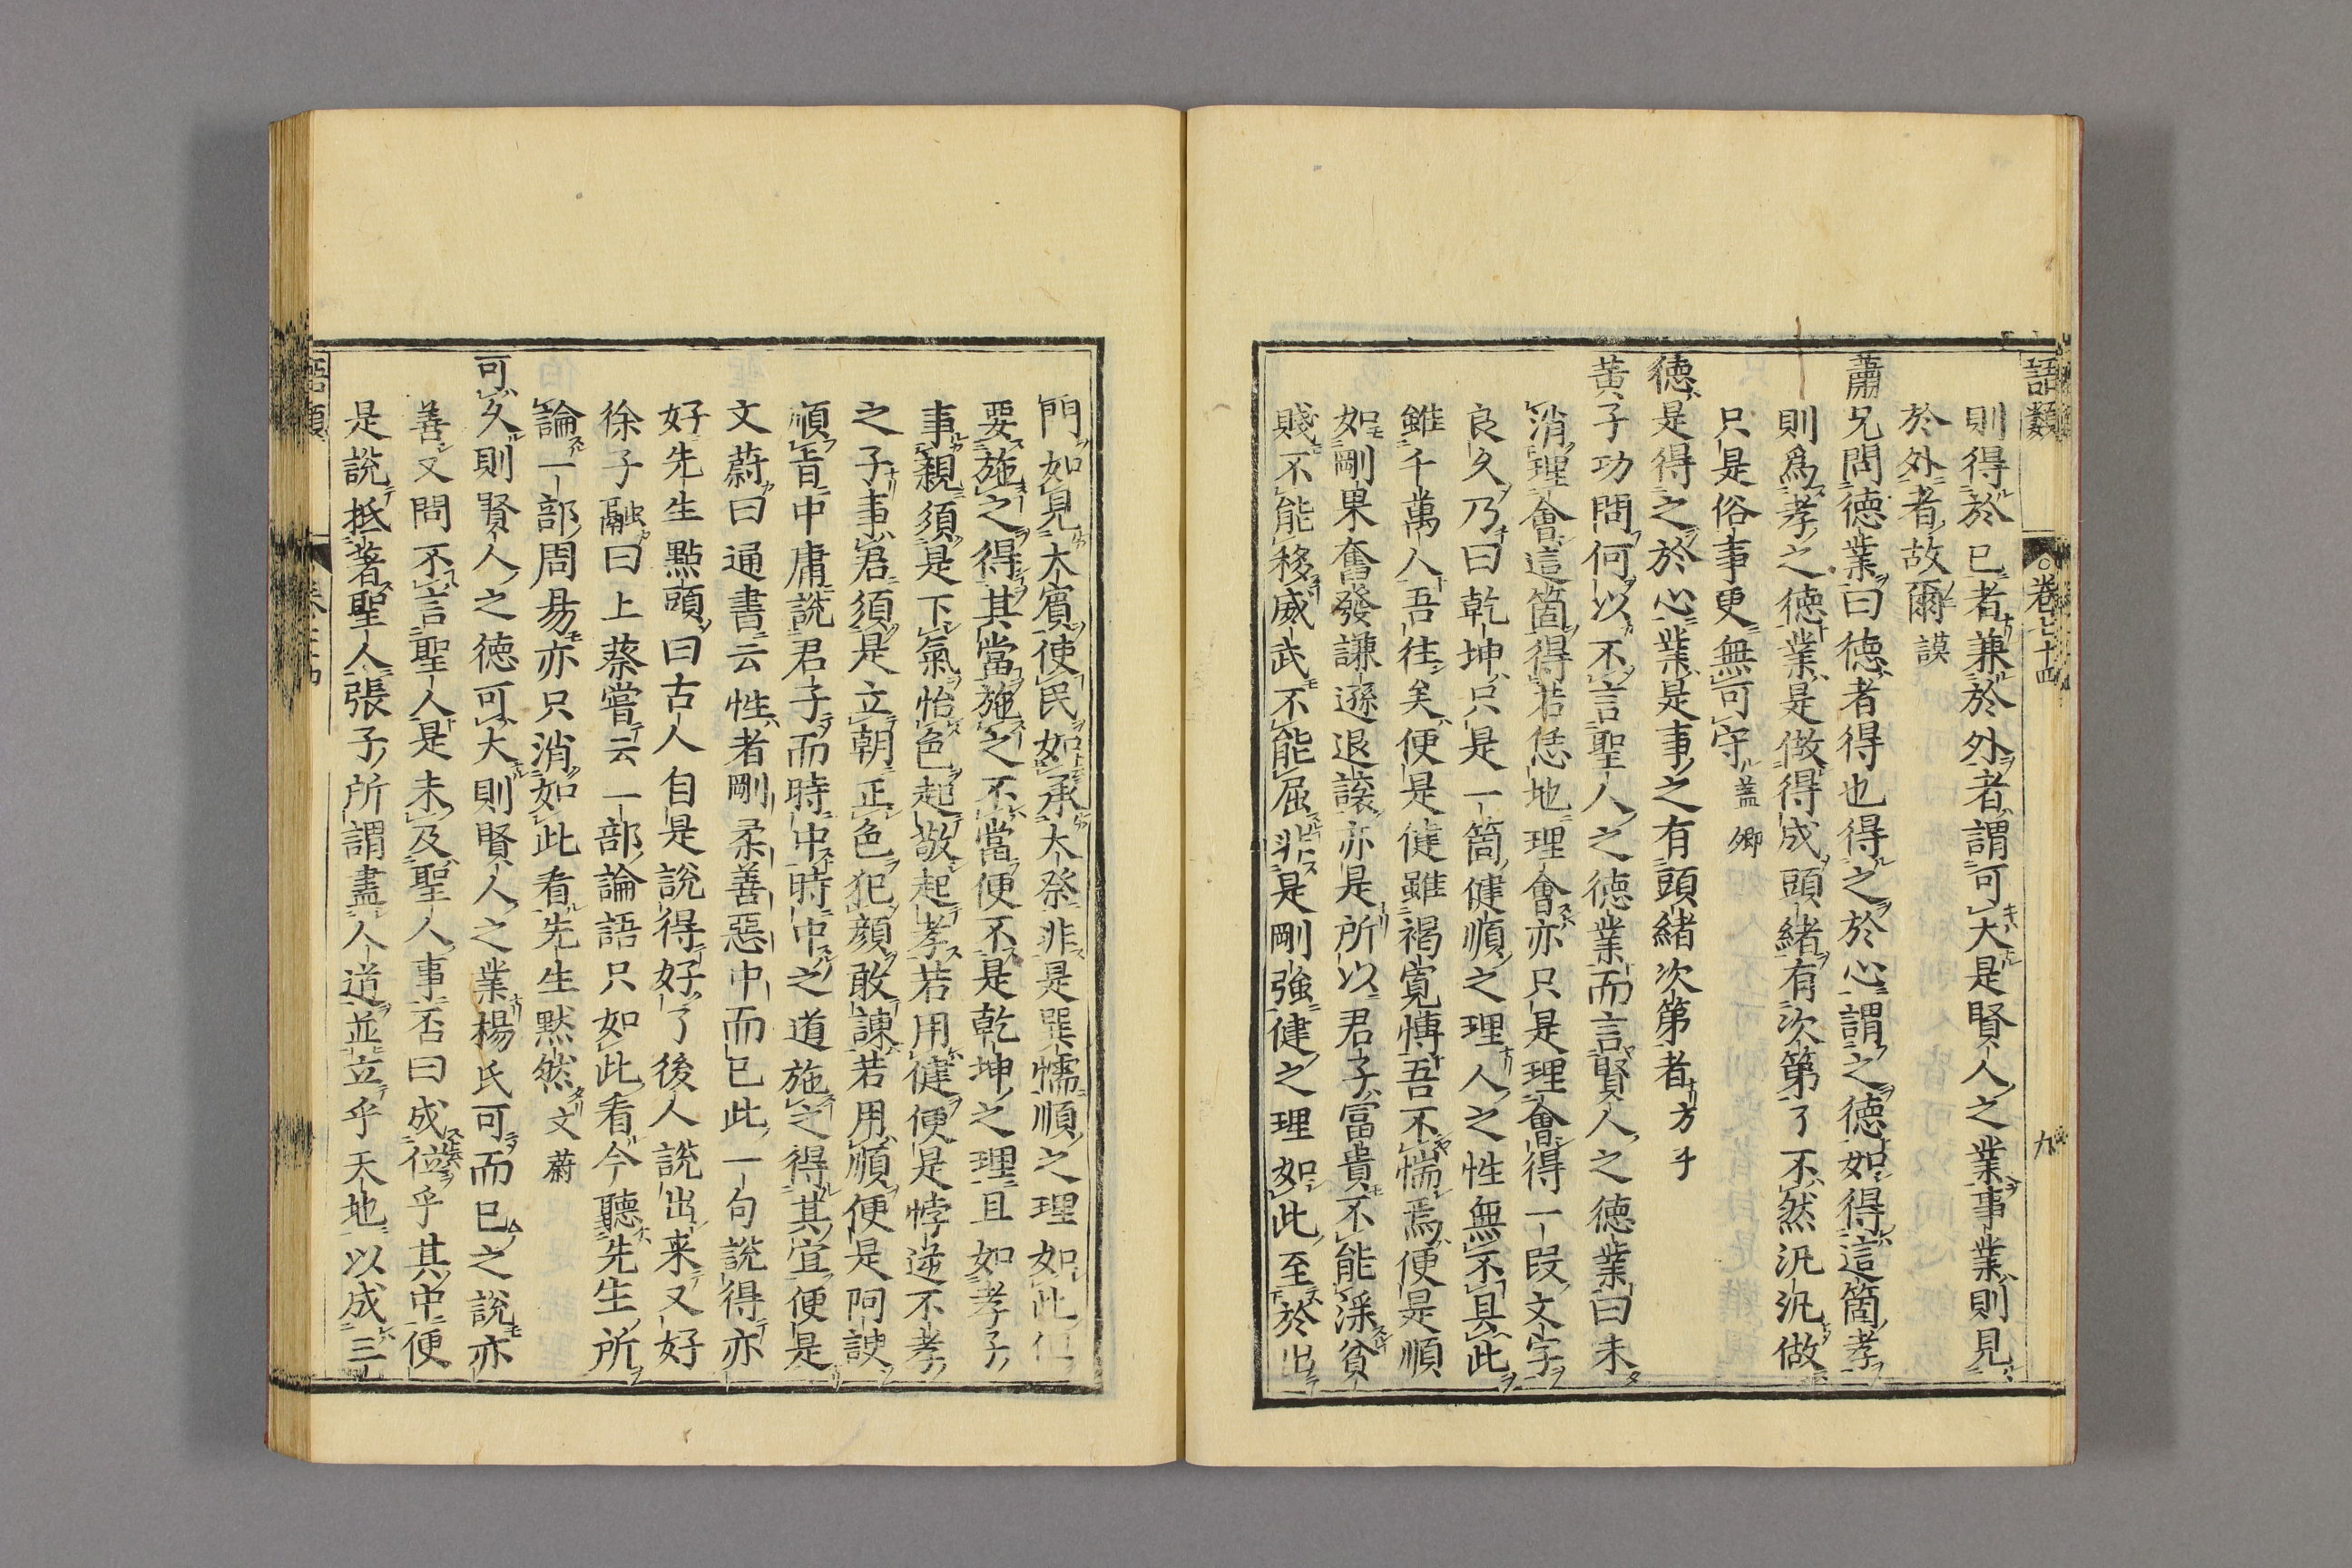 語類
卷七十四
九
則得於已者兼於外者謂可大是賢人之業事業則見
於外者故爾 謨
蕭兄問德業曰德者得也得之於心謂之德如得這箇孝
則爲孝之德業是做得成頭緒有次第了不然汎汎做
只是俗事更無可守 蓋卿
德是得之於心業是事之有頭緒次第者 方子
黃子功問何以不言聖人之德業而言賢人之德業曰未
消理會這箇得若恁地理會亦只是理會得一段文字
良久乃曰乾坤只是一箇健順之理人之性無不具此
雖千萬人吾往矣便是健雖褐寬博吾不惴焉便是順
如剛果奮發謙遜退讓亦是所以君子富貴不能淫貧
賤不能移威武不能屈非是剛強健之理如此至於出
門如見大賓使民如承大祭非是巽懦順之理如此但
要施之得其當施之不當便不是乾坤之理且如孝子
事親須是下氣怡色起敬起孝若用健便是悖逆不孝
之子事君須是立朝正色犯顏敢諫若用順便是阿諛
順旨中庸說君子而時中時中之道施之得其宜便是
文蔚曰通書云性者剛柔善惡中而已此一句說得亦
好先生點頭曰古人自是說得好了後人說出来又好
徐子融曰上蔡嘗云一部論語只如此看今聽先生所
論一部周易亦只消如此看先生默然 文蔚
可久則賢人之德可大則賢人之業楊氏可而已之說亦
善又問不言聖人是未及聖人事否曰成位乎其中便
是說抵著聖人張子所謂盡人道並立乎天地以成三
語類